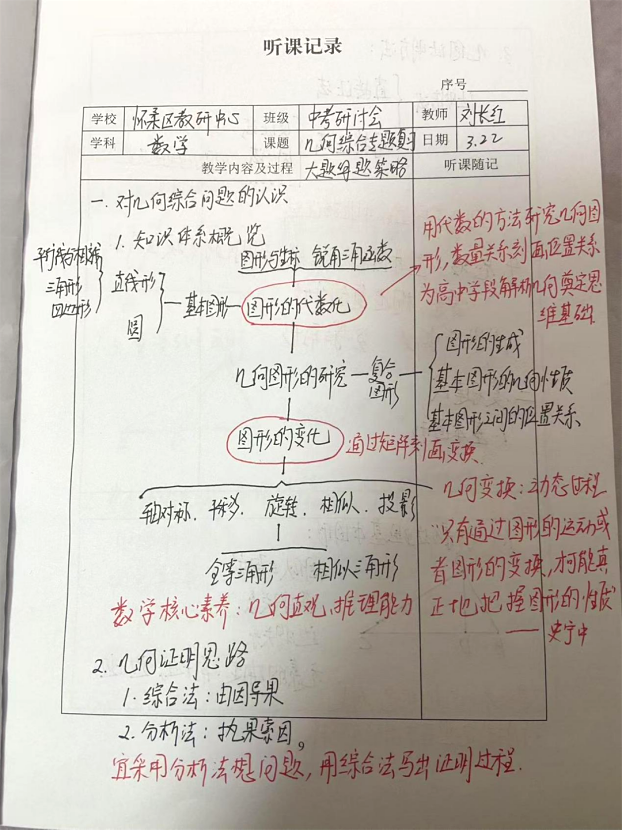 听课记录
序号
学校 怀柔区教研中心 班级 中考研讨会 教师 刘长红
学科 数学 课题 几何综合专题与 日期 3.22
教学内容及过程 大题解题策略 听课随记
一.对几何综合问题的认识
1.知识体系概览
图形与坐标 锐角三角函数
平行线与相交线
三角形
四边形
直线形
圆
基本图形
图形的代数化
用代数的方法研究几何图
形,数量关系刻画位置关系
为高中学段解析几何奠定思
维基础.
几何图形的研究
复合
图形
图形的生成
基本图形的几何性质
基本图形之间的位置关系
图形的变化
通过矩阵刻画变换.
轴对称、平移、旋转、相似、投影
全等三角形 相似三角形
几何变换:动态过程
只有通过图形的运动或
者图形的变换,才可能真
正地把握图形的性质
——史宁中
数学核心素养:几何直观,推理能力
2.几何证明思路
1.综合法:由因导果
2.分析法:执果索因。
宜采用分析法想问题,用综合法写出证明过程.